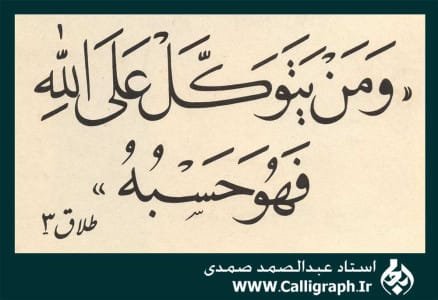 «وَمَنْ يَتَوَكَّلْ عَلَى اللّٰهِ
فَهُوَ حَسْبُهُ»
طلاق ٣
استاد عبدالصمد صمدی
WWW.Calligraph.Ir